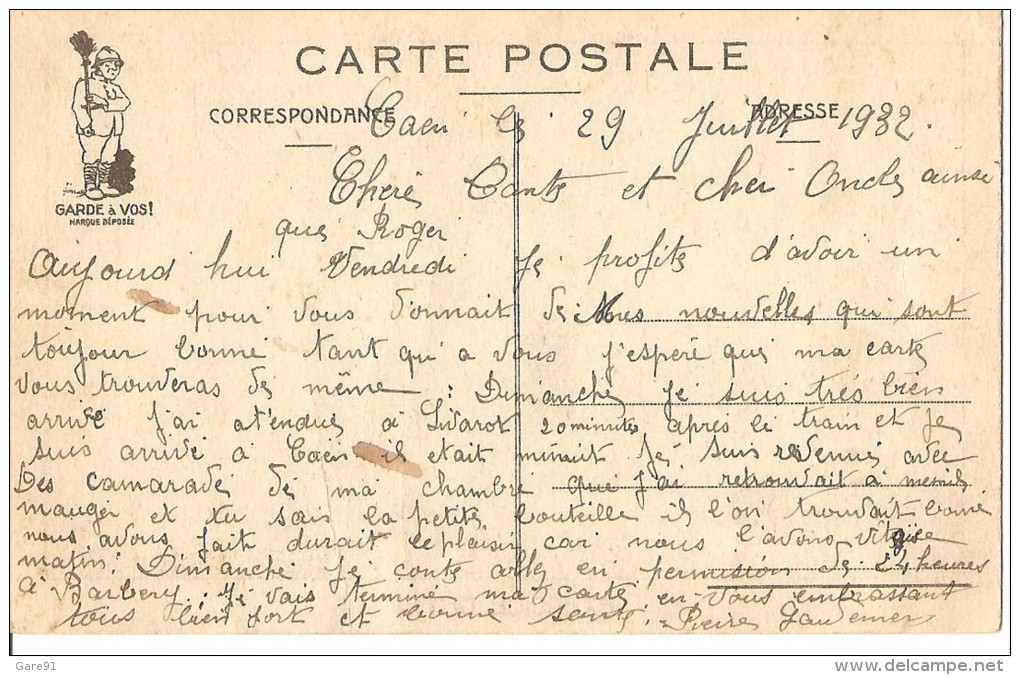 CARTE POSTALE
CORRESPONDANCE
ADRESSE
GARDE à VOS!
MARQUE DÉPOSÉE
Caen le 29 Juillet 1932.
Cheré Tante et cher Oncle ainsi
que Roger
Aujourd hui Vendredi je profite d'avoir un
moment pour vous donnait de Mes nouvelles qui sont
toujour bonne tant qu'a vous j'esperé que ma carte
vous trouveras de même : Dimanche je suis très bien
arrivé j'ai attendue à Livarot 20 minutes après le train et je
suis arrivé à Caen il etait minuit je suis revenue avec
Des camarade de ma chambre que j'ai retrouvait à mesnil
mauger et tu sais la petite bouteille il l'on trouvait bonne
nous avons fait durait le plaisir car nous l'avons vite
matin: Dimanche je conte aller en permission de 24 heures
à Barbery. Je vais terminé ma carte en vous embrassant
tous bien fort et bonne santé. Pierre
Gare91
www.delcampe.net